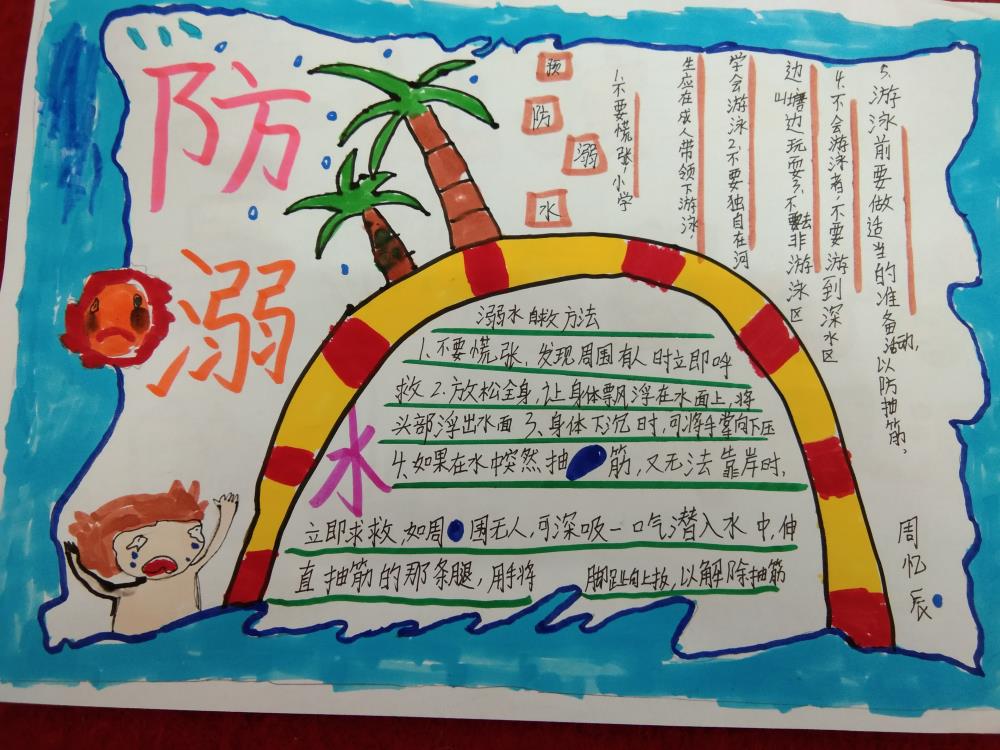 防
溺
水
预
防
溺
水
1.不要慌张,小学
生应在成人带领下游泳,
学会游泳2.不要独自在河
边山塘边玩耍3.不要去非游泳区
4.不会游泳者,不要游到深水区
5.游泳前要做适当的准备活动,以防抽筋,
溺水自救方法
1.不要慌张,发现周围有人时立即呼
救2.放松全身,让身体飘浮在水面上,将
头部浮出水面3、身体下沉时,可将手掌向下压
4.如果在水中突然抽筋,又无法靠岸时,
立即求救,如周围无人,可深吸一口气潜入水中,伸
直抽筋的那条腿,用手将脚趾向上扳,以解除抽筋
周忆辰